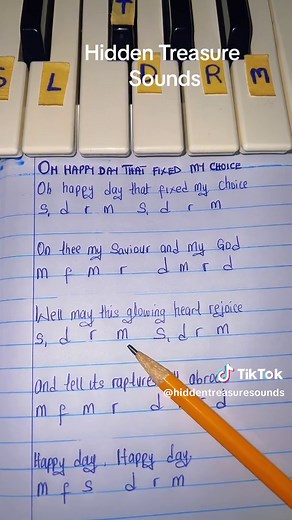 T
Hidden Treasure
Sounds
S L D R M
OH HAPPY DAY THAT FIXED MY CHOICE
Oh happy day that fixed my choice
s, d r m s, d r m
On thee my Saviour and my God
m f m r d m r d
Well may this glowing heart rejoice
s, d r m s, d r m
TikTok
And tell its raptures abroa
@hiddentreasuresounds
m f m r d d
Happy day, Happy day,
m f s d r m